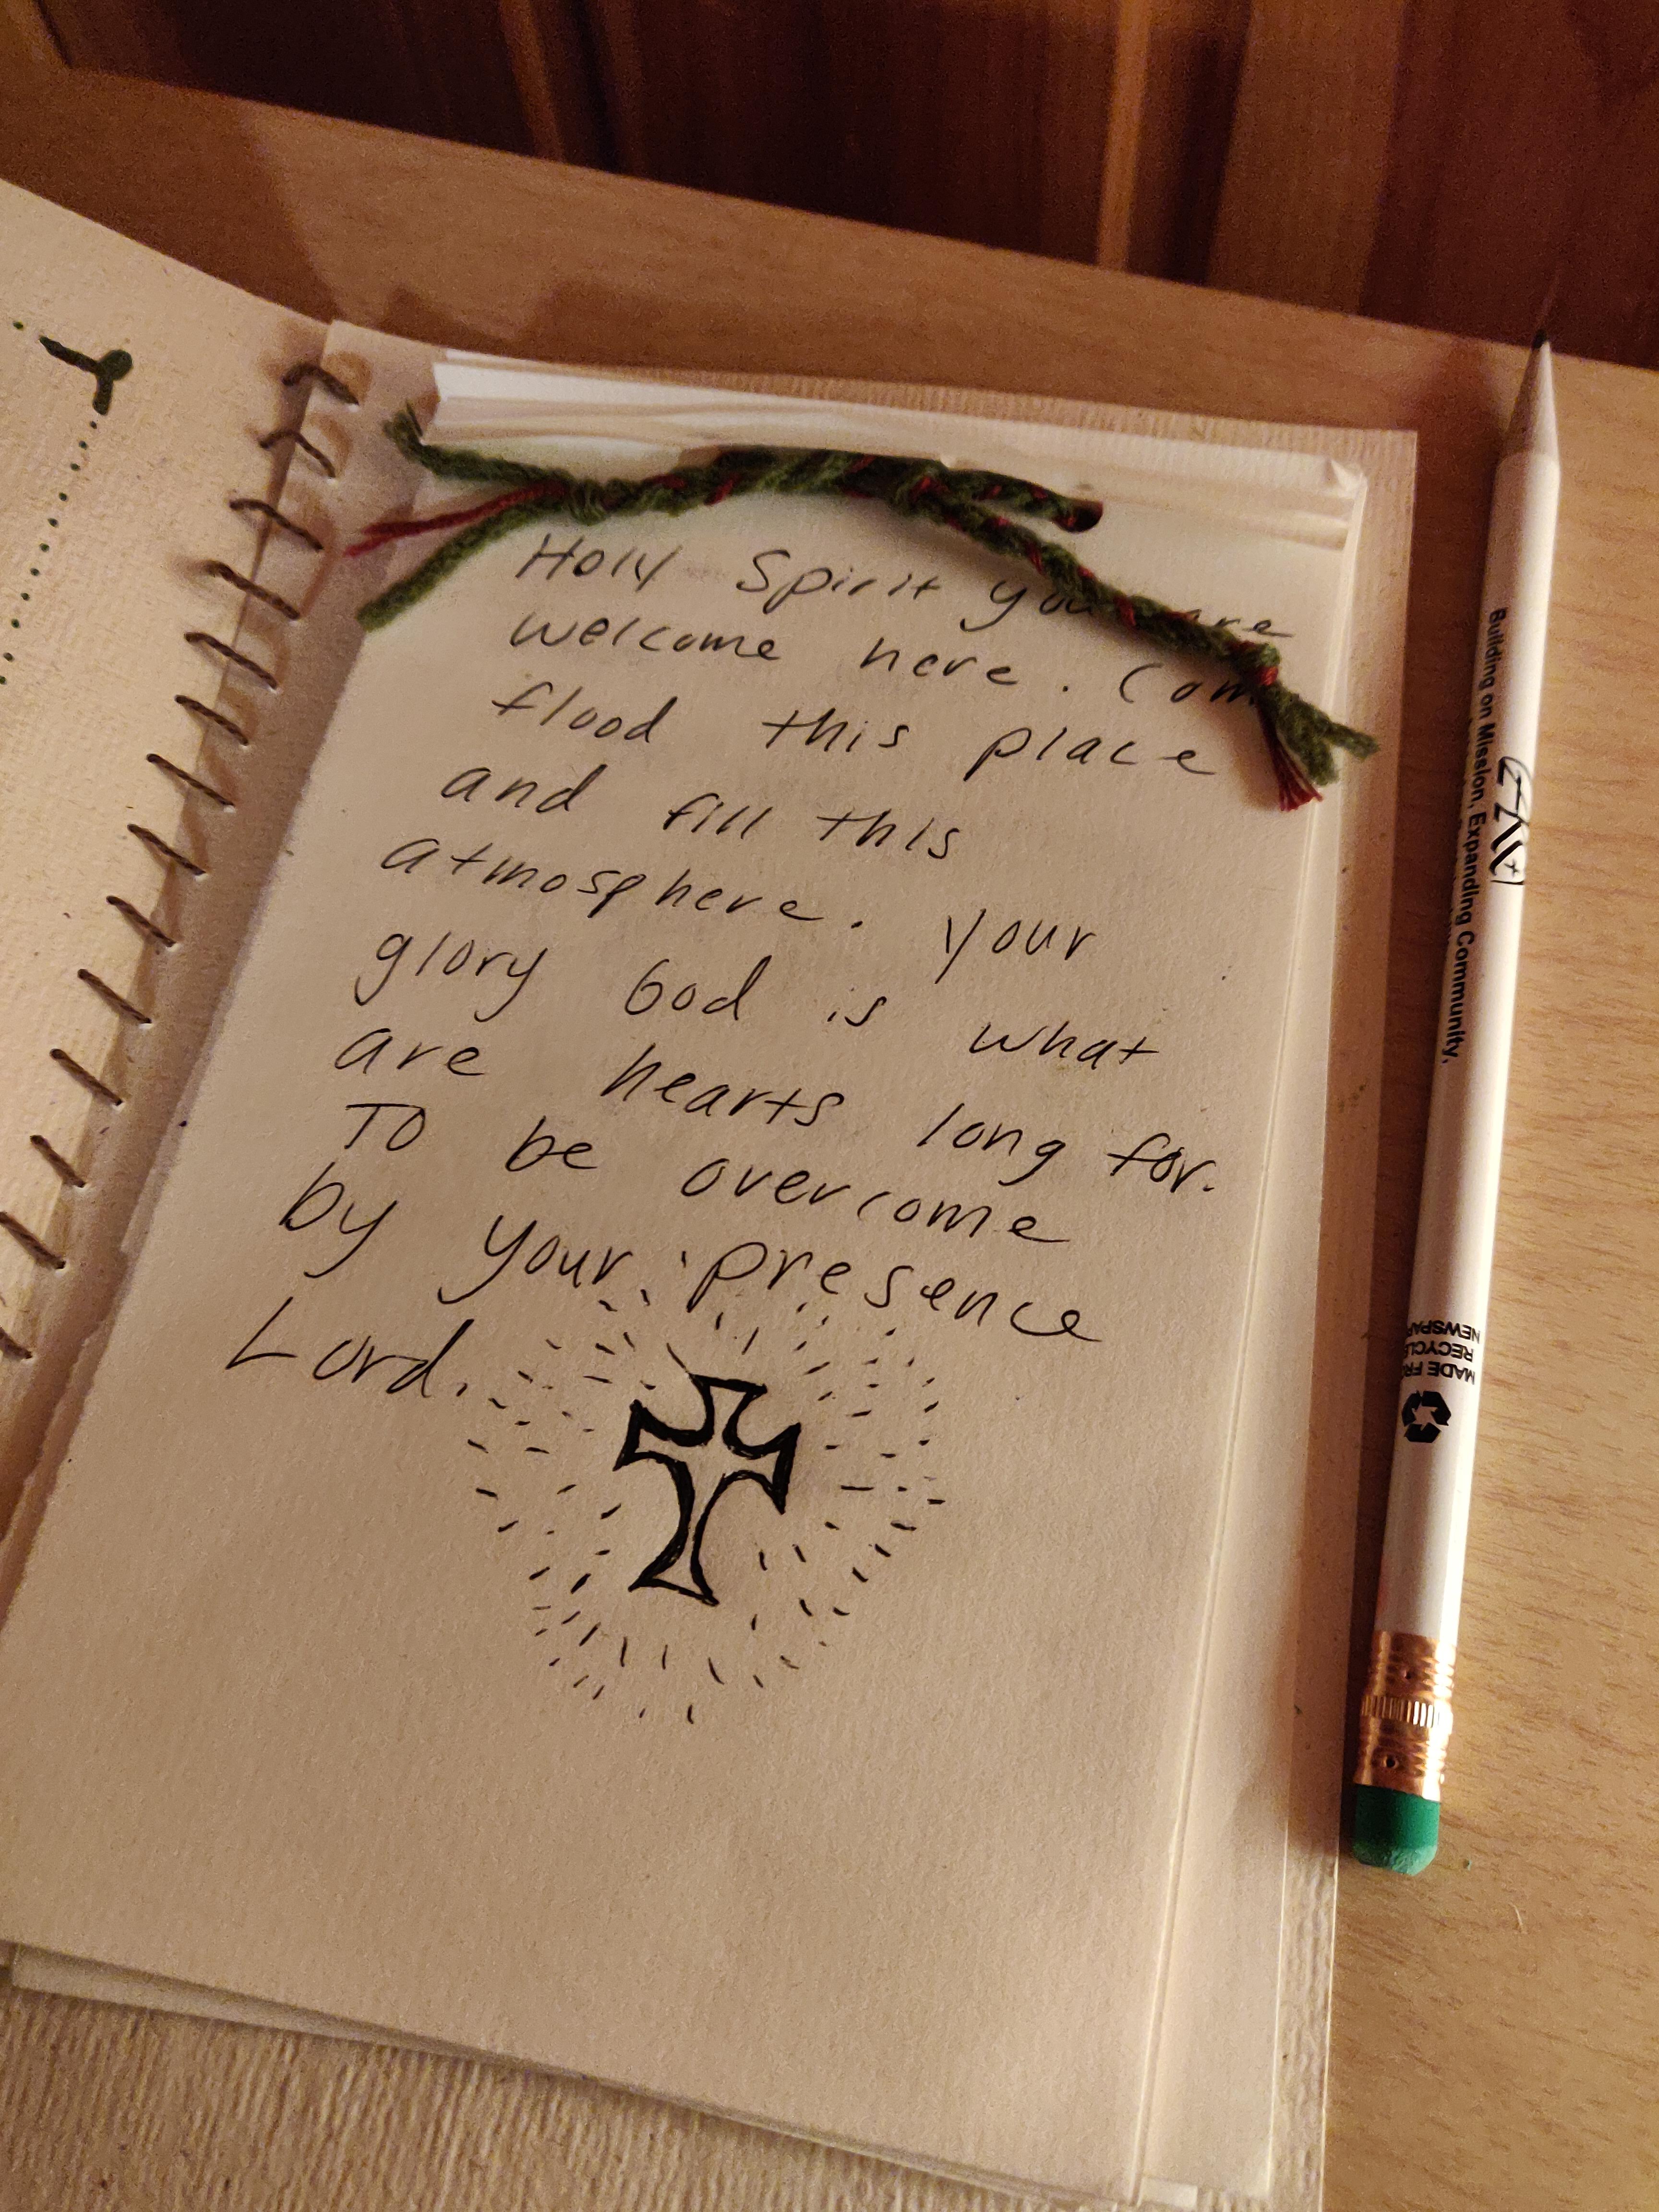 Holy Spirit you are
welcome here. Com
flood this place
and fill this
atmosphere. Your
glory God is what
are hearts long for.
To be overcome
by your presence
Lord.
Building on Mission, Expanding Community.
MADE FR
RECYCLE
NEWSPAP